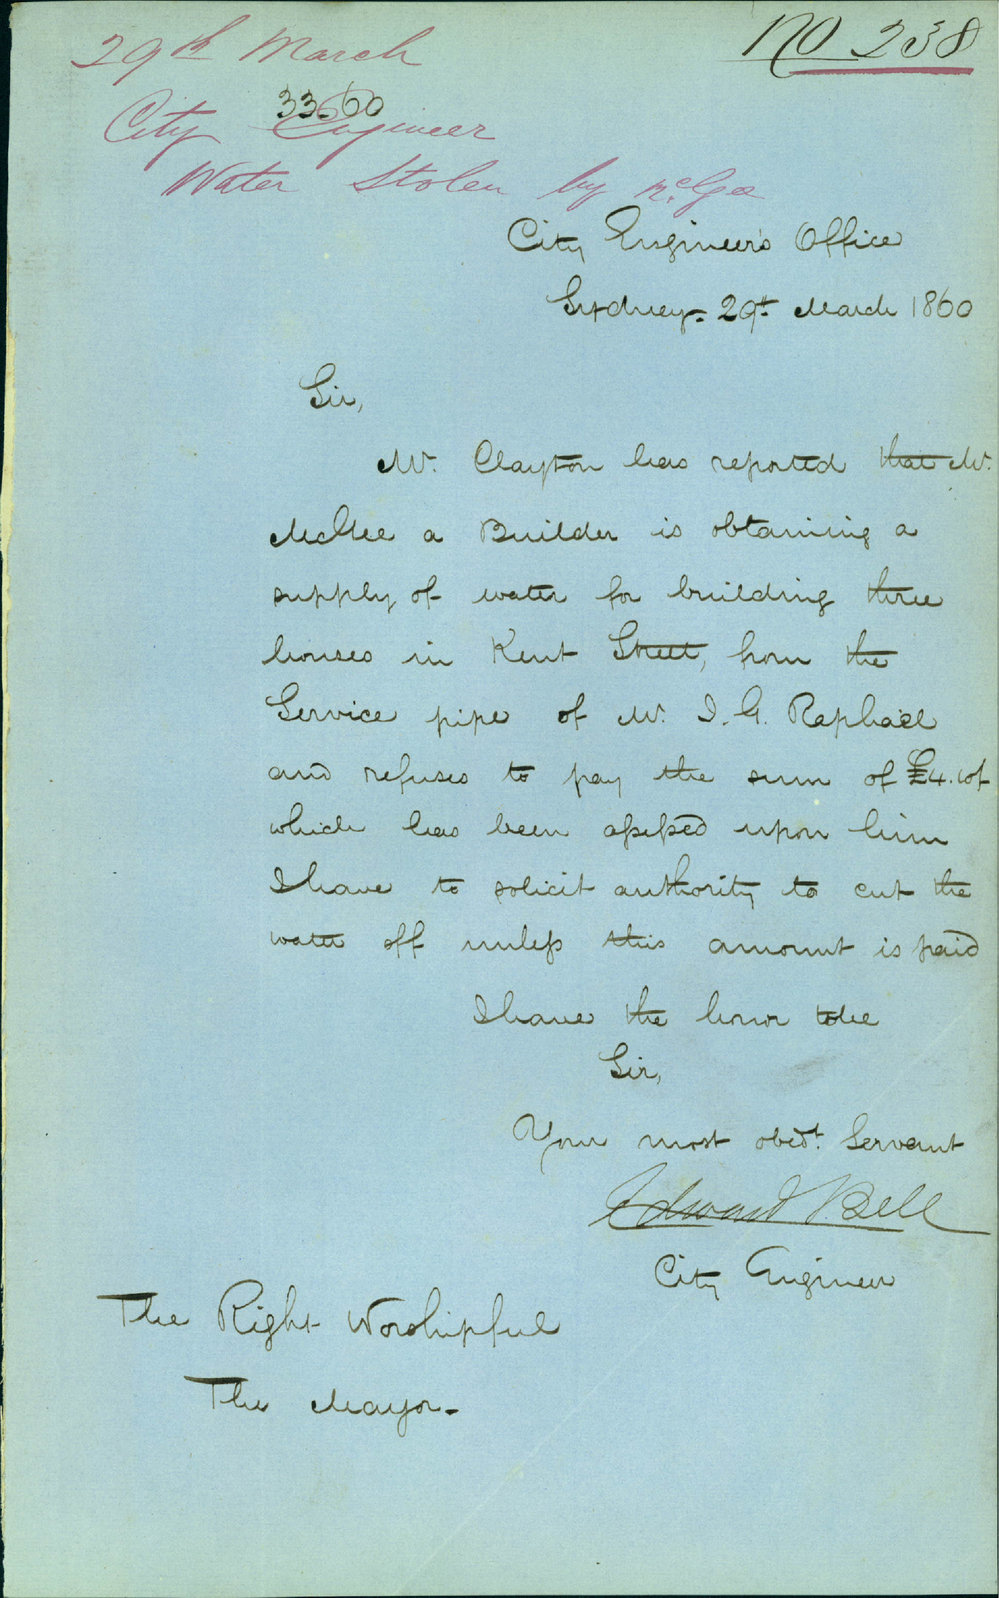 29th March
No 238
33.60
City Engineer
Water Stolen by McGee
City Engineer's Office
Sydney. 29th March 1860
Sir,
Mr. Clayton has reported that Mr.
McGee a Builder is obtaining a
supply of water for building three
houses in Kent Street, from the
Service pipe of Mr. J. G. Raphael
and refuses to pay the sum of £4.
which has been assessed upon him
I have to solicit authority to cut the
water off unless this amount is paid
I have the honor to be
Sir,
Your most obedt. Servant
Edward Bell
City Engineer
The Right Worshipful
The Mayor-